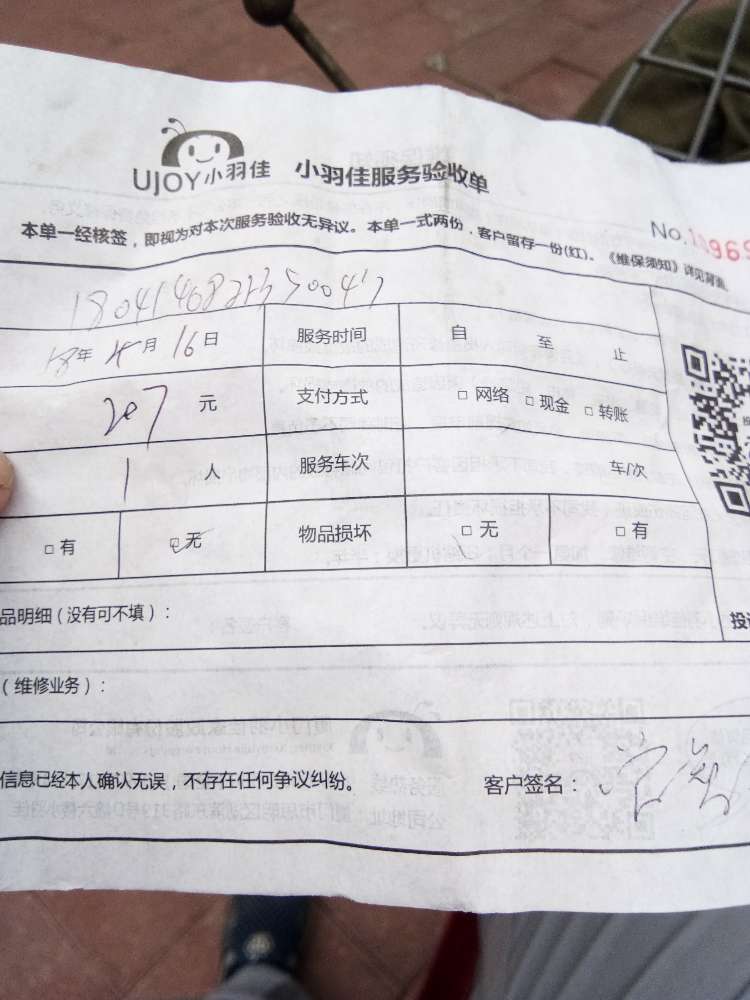 UJOY小羽佳 小羽佳服务验收单
本单一经核签，即视为对本次服务验收无异议。本单一式两份，客户留存一份(红)。《维保须知》详见背面
No.
18年 4月 16日 服务时间 自 至 止
207 元 支付方式 □ 网络 □ 现金 □ 转账
1 人 服务车次 车/次
□ 有 □ 无 物品损坏 □ 无 □ 有
品明细（没有可不填）：
（维修业务）：
信息已经本人确认无误，不存在任何争议纠纷。 客户签名：